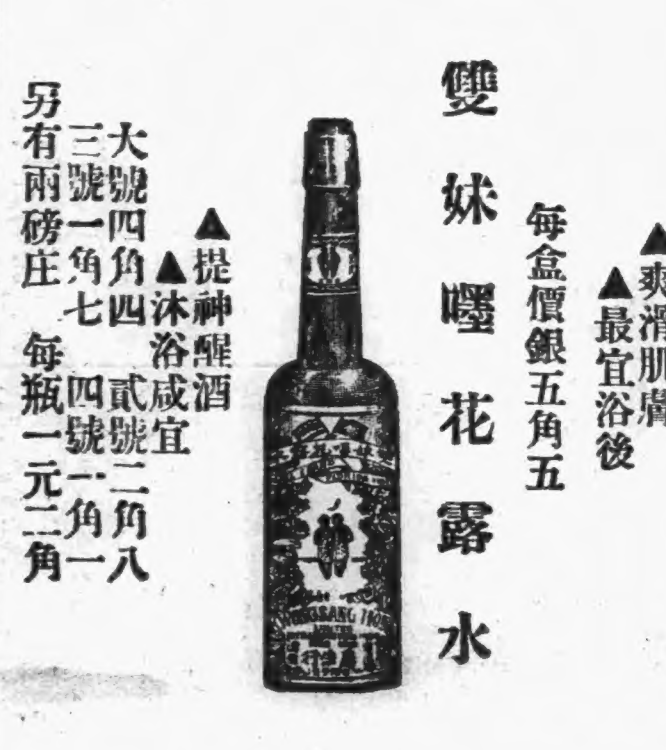 ▲爽滑肌膚
▲最宜浴後
每盒價銀五角五
雙妹嚜花露水
▲提神醒酒
▲沐浴咸宜
大號四角四 貳號二角八
三號一角七 四號一角一
另有兩磅庄 每瓶一元二角